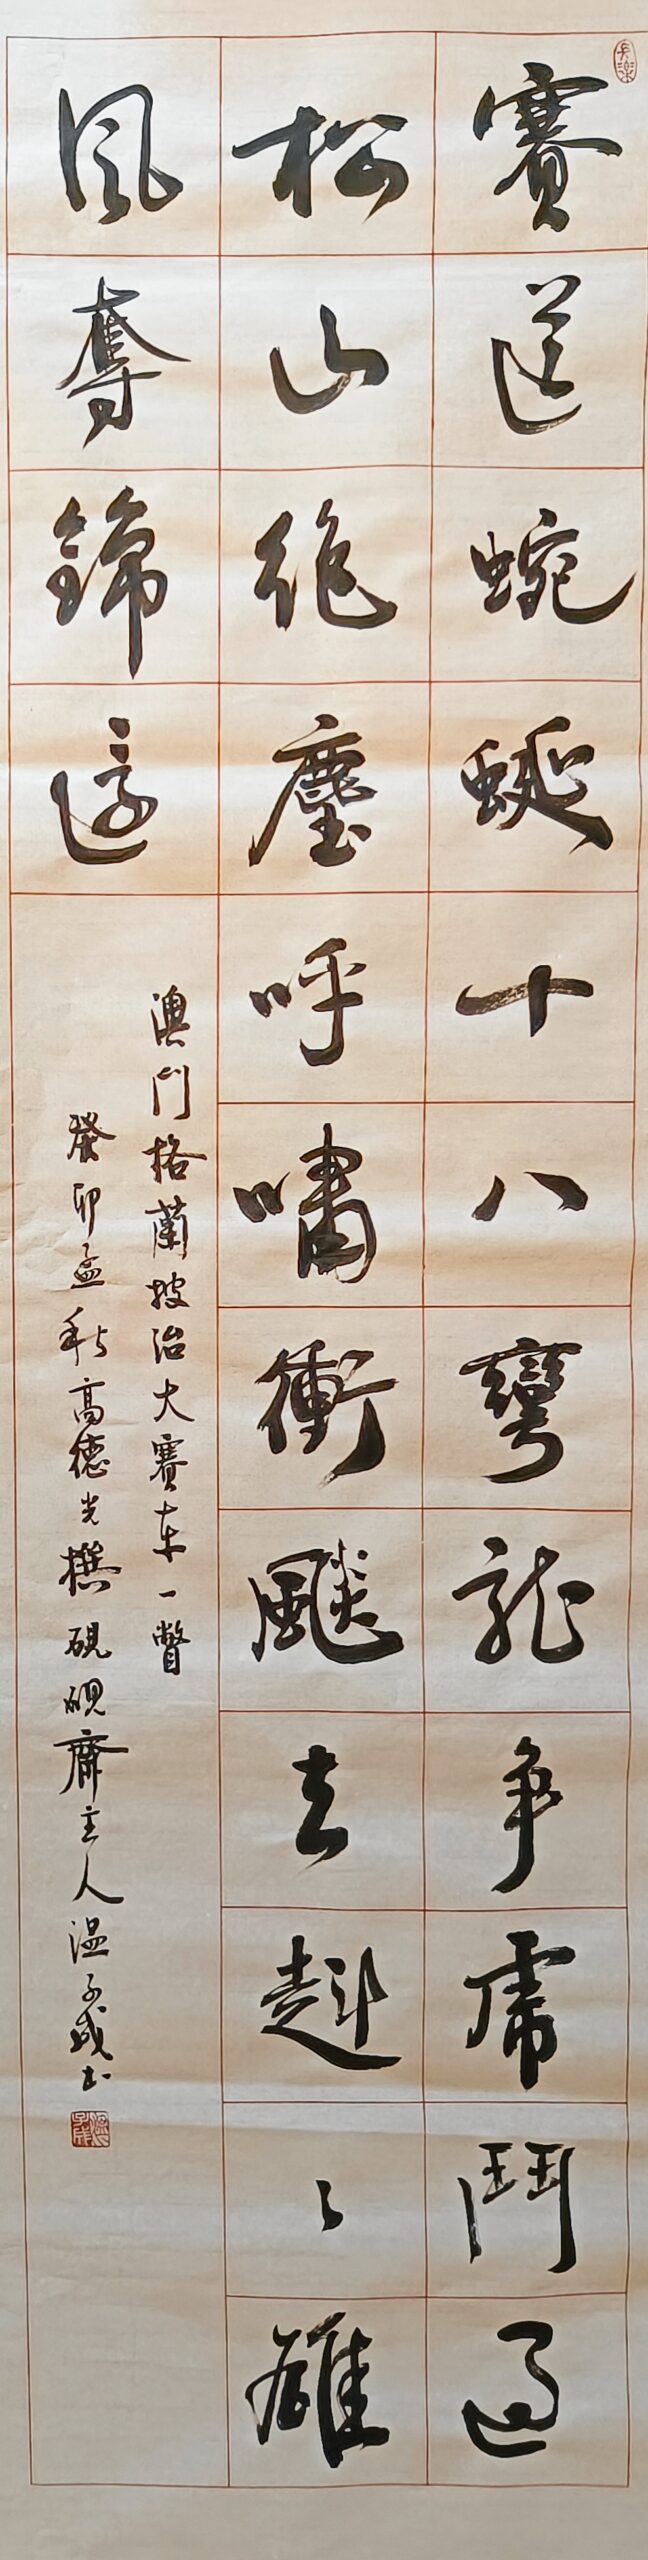 賽道蜿蜒十八彎龍爭虎鬥過
松山絶塵呼嘯衝飈去赳々雄
風奪錦還
澳門格蘭披治大賽車一瞥
癸卯孟秋高德光撰硯硯齋主人温子成書
長樂